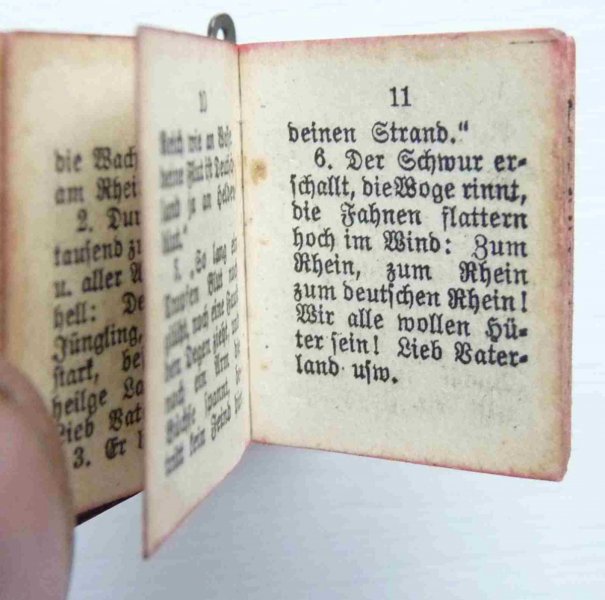 die Wach
am Rhei
2. Dur
tausend zu
u. aller A
hell: De
Jüngling,
stark, bes
heilge La
Lieb Vat
3. Er
10
Reich wie an
deine Flut ist Deutsch
land ja an Helden
blut."
5. „So lang
Tropfen Blut noch
glüht, noch eine Faust
den Degen zieht, und
noch ein Arm die
Büchse spannt,
tritt kein Feind hier
11
deinen Strand."
6. Der Schwur er-
schallt, die Woge rinnt,
die Fahnen flattern
hoch im Wind: Zum
Rhein, zum Rhein
zum deutschen Rhein!
Wir alle wollen Hü-
ter sein! Lieb Vater-
land usw.